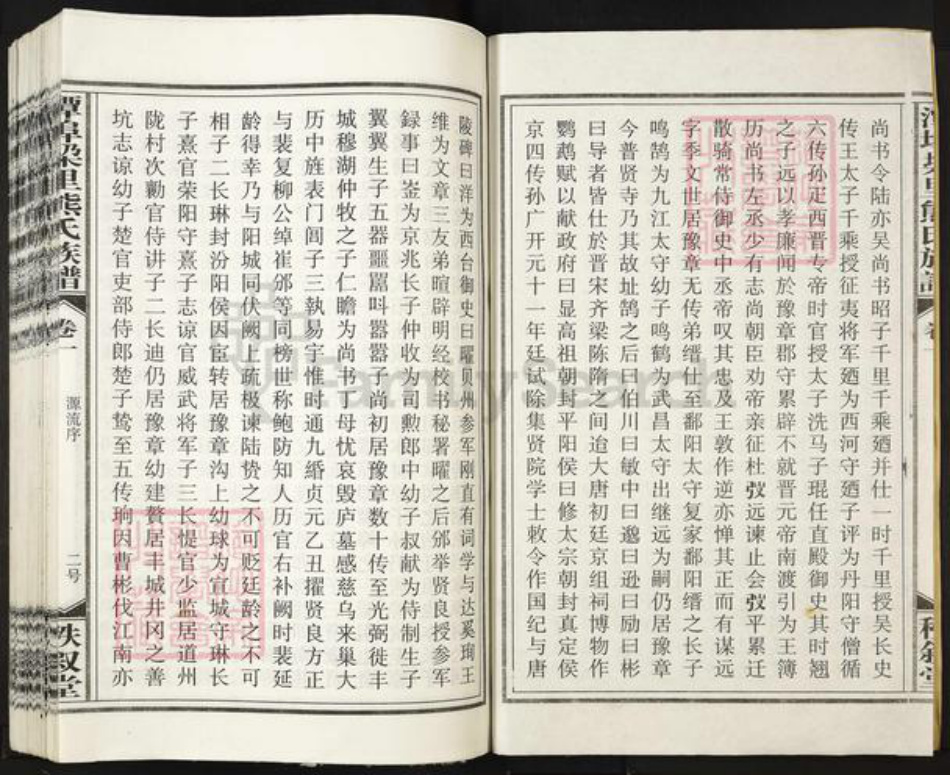 尚书令陆亦吴尚书昭子千里千乘廼并仕一时千里授吴长史
传王太子千乘授征夷将军廼为西河守廼子评为丹阳守僧循
六传孙疋西晋专帝时官授太子洗马子琨任直殿御史其时翘
之子远以孝廉闻於豫章郡守累辟不就晋元帝南渡引为王簿
历尚书左丞少有志尚朝臣劝帝亲征杜弢远谏止会弢平累迁
散骑常侍御史中丞帝叹其忠及王敦作逆亦惮其正而有谋远
字季文世居豫章无传弟缙仕至鄱阳太守复家鄱阳缙之长子
鸣鹄为九江太守幼子鸣鹤为武昌太守出继远为嗣仍居豫章
今普贤寺乃其故址鹄之后曰伯川曰敏中曰邈曰逊曰励曰彬
曰导者皆仕於晋宋齐梁陈隋之间迨大唐初廷京组祠博物作
鹦鹉赋以献政府曰显高祖朝封平阳侯曰修太宗朝封真定侯
京四传孙广开元十一年廷试除集贤院学士敕令作国纪与唐
陵碑曰洋为西台御史曰曜贝州参军刚直有词学与达奚珣王
维为文章三友弟暄辟明经校书秘署曜之后邠举贤良授参军
録事曰崟为京兆长子仲收为司勲郎中幼子叔献为侍制生子
翼翼生子五器噩嚚嘂嚣嚣子尚初居豫章数十传至光弼徙丰
城穆湖仲牧之子仁瞻为尚书丁母忧哀毁庐墓感慈乌来巢大
历中旌表门闾子三執易宇惟时通九緍贞元乙丑擢贤良方正
与裴复柳公绰崔邠等同榜世称鲍防知人历官右补阙时裴延
龄得幸乃与阳城同伏阙上疏极谏陆贽之不可贬廷龄之不可
相子二长琳封汾阳侯因宦转居豫章沟上幼球为宣城守琳长
子熹官荣阳守熹子志谅官威武将军子三长惿官少监居道州
陇村次勷官侍讲子二长迪仍居豫章幼建赘居丰城井冈之善
坑志谅幼子楚官吏部侍郎楚子鸷至五传珦因曹彬伐江南亦
潭埠梁里熊氏族譜
卷一
源流序
二号
秩叙堂
FamilySearch